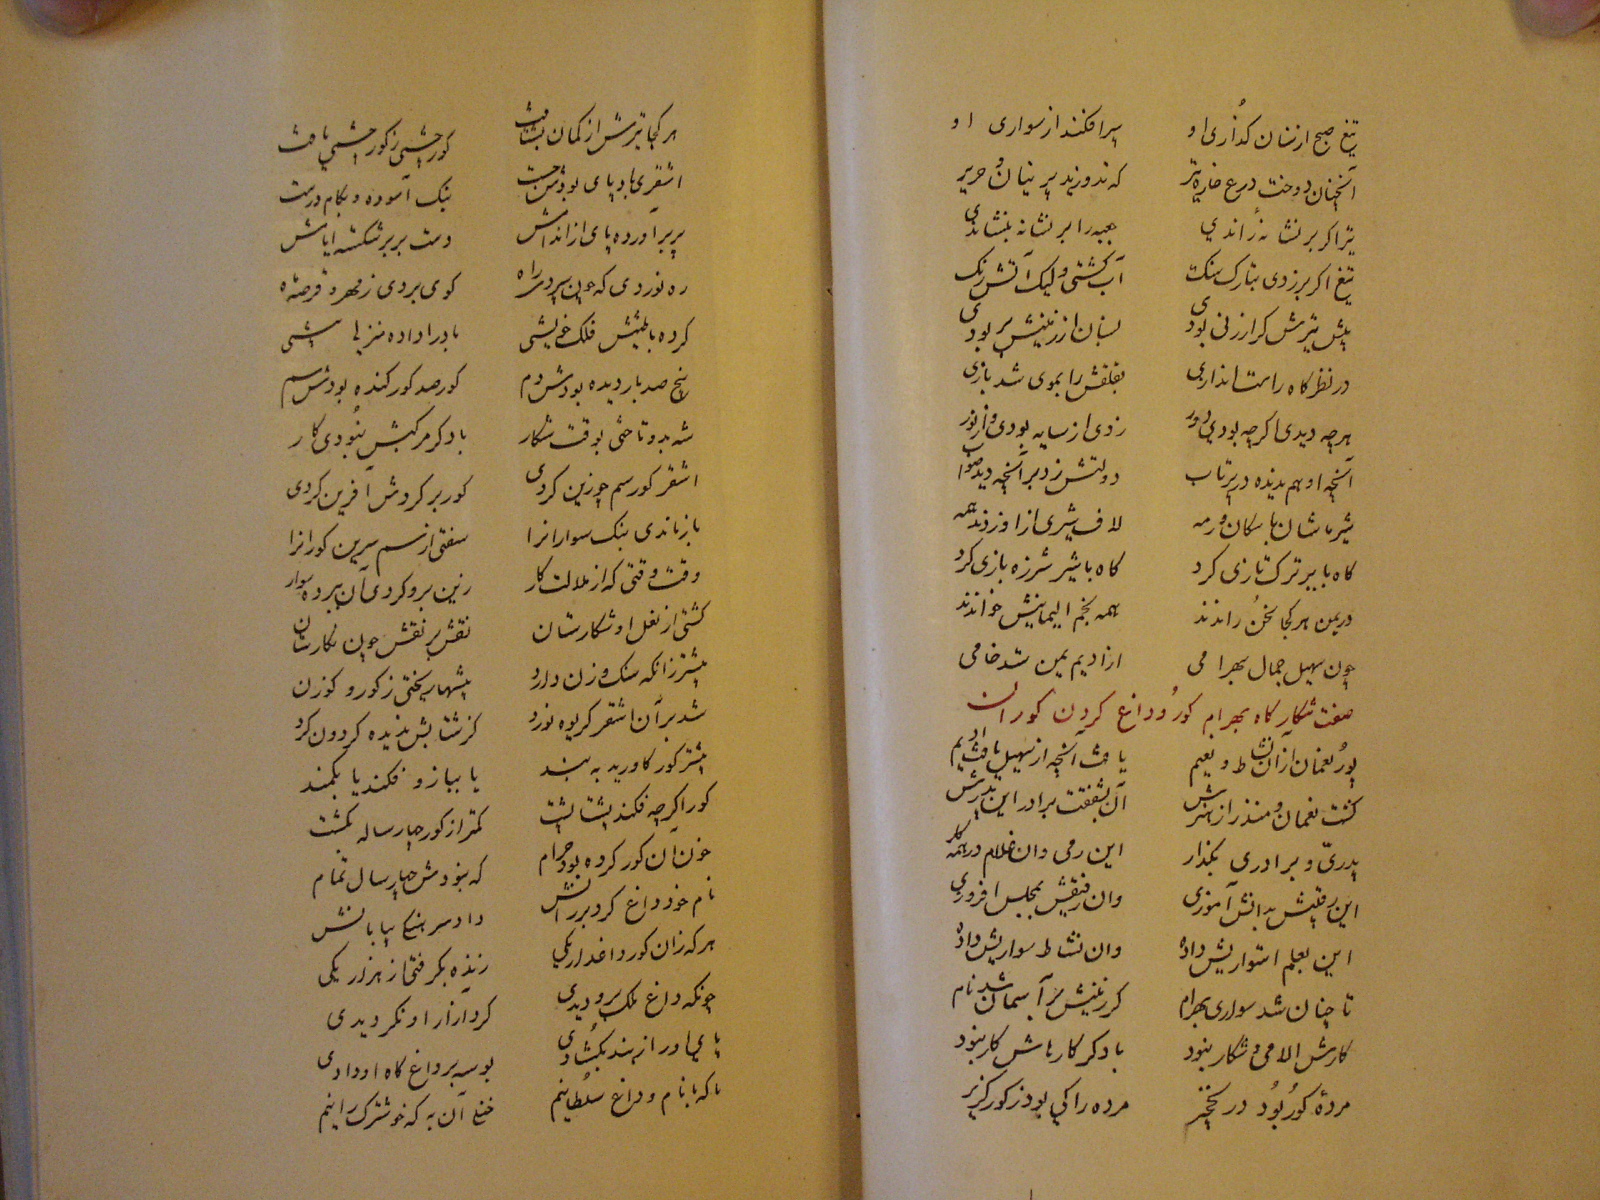 تیغ صبح از سنان گذاری او سپر افکند از سواری او
آنچنان دوخت درع خاره بتیر که ندوزند پرنیان و حریر
تیر اگر بر نشانه راندی جعبه را بر نشانه بنشاندی
تیغ اگر بر زدی بتارک سنگ آب گشتی ولیک آتش رنگ
پیش تیرش گر ارزنی بودی بسنان ارزنیش بربودی
در نظرگاه راست اندازی بغلقش را بموی شد بازی
هرچه دیدی اگرچه بودی دور زدی از سایه بودی و از نور
آنچه او هم ندیده در پرتاب دولتش زد بر آنچه دید صواب
شیرباشان پاسگان رمه لاف شیری ازو زدند همه
گاه با ببر ترک تازی کرد گاه با شیر شرزه بازی کرد
در یمن هر کجا سخن راندند همه نجم الیمانیش خواندند
چون سهیل جمال بهرامی از ادیم یمن ستد خامی
صفت شکارگاه بهرام گور و داغ کردن گوران
پور نعمان از آن نشاط و نعیم یافت آنچه از سهیل یافت ادیم
گشت نعمان و منذر از هنرش آن بشفقت برادر این پدرش
پدری و برادری بگذار این رهی وان غلام در همه کار
این رفیقش بدانش آموزی وان رفیقش بمجلس افروزی
این بعلم استواریش داده وان نشاط سواریش داده
تا چنان شد سواری بهرام کز زمینش بر آسمان شد نام
کارش الا می و شکار نبود با دگر کارهاش کار نبود
مردهٔ گور بود در نخچیر مرده را کی بود ز گور گزیر
هر کجا تیرش از کمان بشتافت گور چشمی ز گور چشمی یافت
اشقری بادپای بودش چست بتک آسوده و بگام درست
پر برآورده پای از اندامش دست بر بر شکسته ایامش
ره نوردی که چون سپردی راه گوی بردی ز مهر و قرصه ماه
کرده با جنبش فلک خویشی باد را داده منزلی پیشی
پنج صد بار دیده بودش دم گور صد گور کنده بودش سم
شه بدو تاختی بوقت شکار با دگر مرکبش نبودی کار
اشقر گور سم چو زین کردی گور بر گردش آفرین کردی
باز ماندی بتک سواران را سفتی از سم سرین گوران را
وقت وقتی که از ملالت کار زین برو کردی آن پرده سوار
گشتی از نعل او شکارستان نقش بر نقش چون نگارستان
بیشتر زانکه سنگ وزن دارد پشتها ریختی ز گور و گوزن
شد بر آن اشقر گریوه نورد کز شتابش ندیده گردون گرد
بیشتر گور کاورید به بند یا ببازو فکند یا بکمند
گور اگر چه فکند پشتا پشت کمتر از گور چار ساله نکشت
خون آن گور کرده بود حرام که نبودش چهار سال تمام
نام خود داغ کرد بر رانش داد سرهنگی بیابانش
هر که زان گور داغدار یکی زنده بگرفتی از هزار یکی
چونکه داغ ملک برو دیدی گرد آزار او نگردیدی
پای او را ز بند بگشادی بوسه بر داغ گاه او دادی
ما که با نام و داغ سلطانیم ختلی آن به که خوشترک رانیم